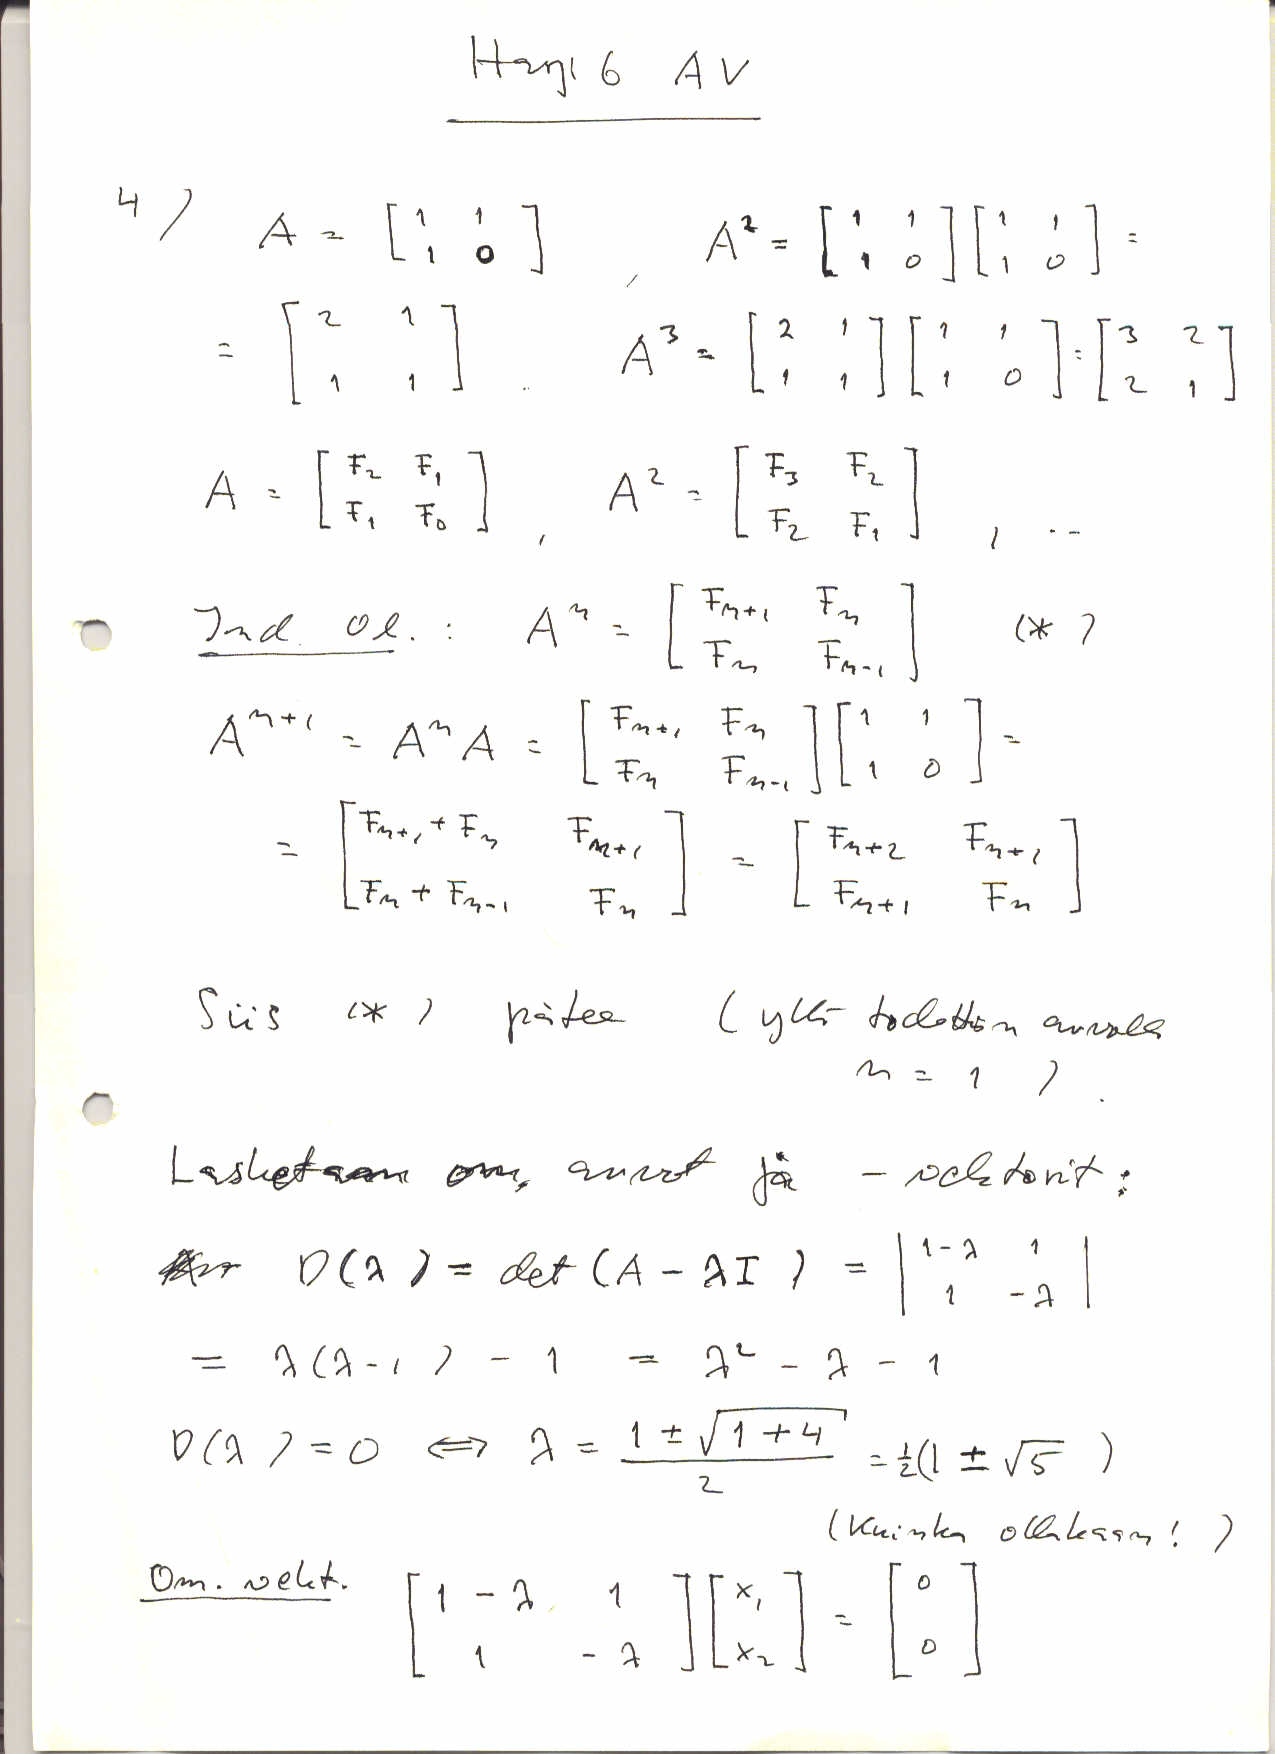 Harj 6 AV
4) A = [1 1; 1 0], A² = [1 1; 1 0][1 1; 1 0] =
= [2 1; 1 1]. A³ = [2 1; 1 1][1 1; 1 0] = [3 2; 2 1]
A = [F₂ F₁; F₁ F₀], A² = [F₃ F₂; F₂ F₁], ..
Ind. ol.: Aⁿ = [Fₙ₊₁ Fₙ; Fₙ Fₙ₋₁] (*)
Aⁿ⁺¹ = AⁿA = [Fₙ₊₁ Fₙ; Fₙ Fₙ₋₁][1 1; 1 0] =
= [Fₙ₊₁ + Fₙ Fₙ₊₁; Fₙ + Fₙ₋₁ Fₙ] = [Fₙ₊₂ Fₙ₊₁; Fₙ₊₁ Fₙ]
Siis (*) pätee (yllä todettiin arvolla
n = 1).
Lasketaan om. arvot ja - vektorit:
D(λ) = det(A - λI) = |1-λ 1; 1 -λ|
= λ(λ-1) - 1 = λ² - λ - 1
D(λ) = 0 ⟺ λ = (1 ± √(1+4))/2 = ½(1 ± √5)
(Kuinka ollakaan!)
Om. vekt. [1-λ 1; 1 -λ][x₁; x₂] = [0; 0]